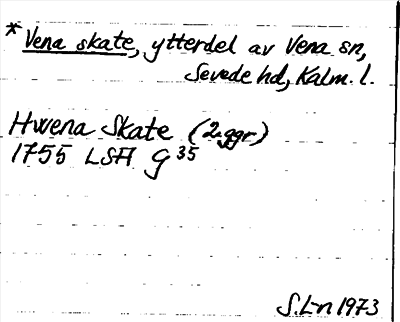 * Vena skate, ytterdel av Vena sn,
Sevede hd, Kalm. l.
Hwena Skate (2 ggr)
1755 LSA G 35
S.L-n 1973